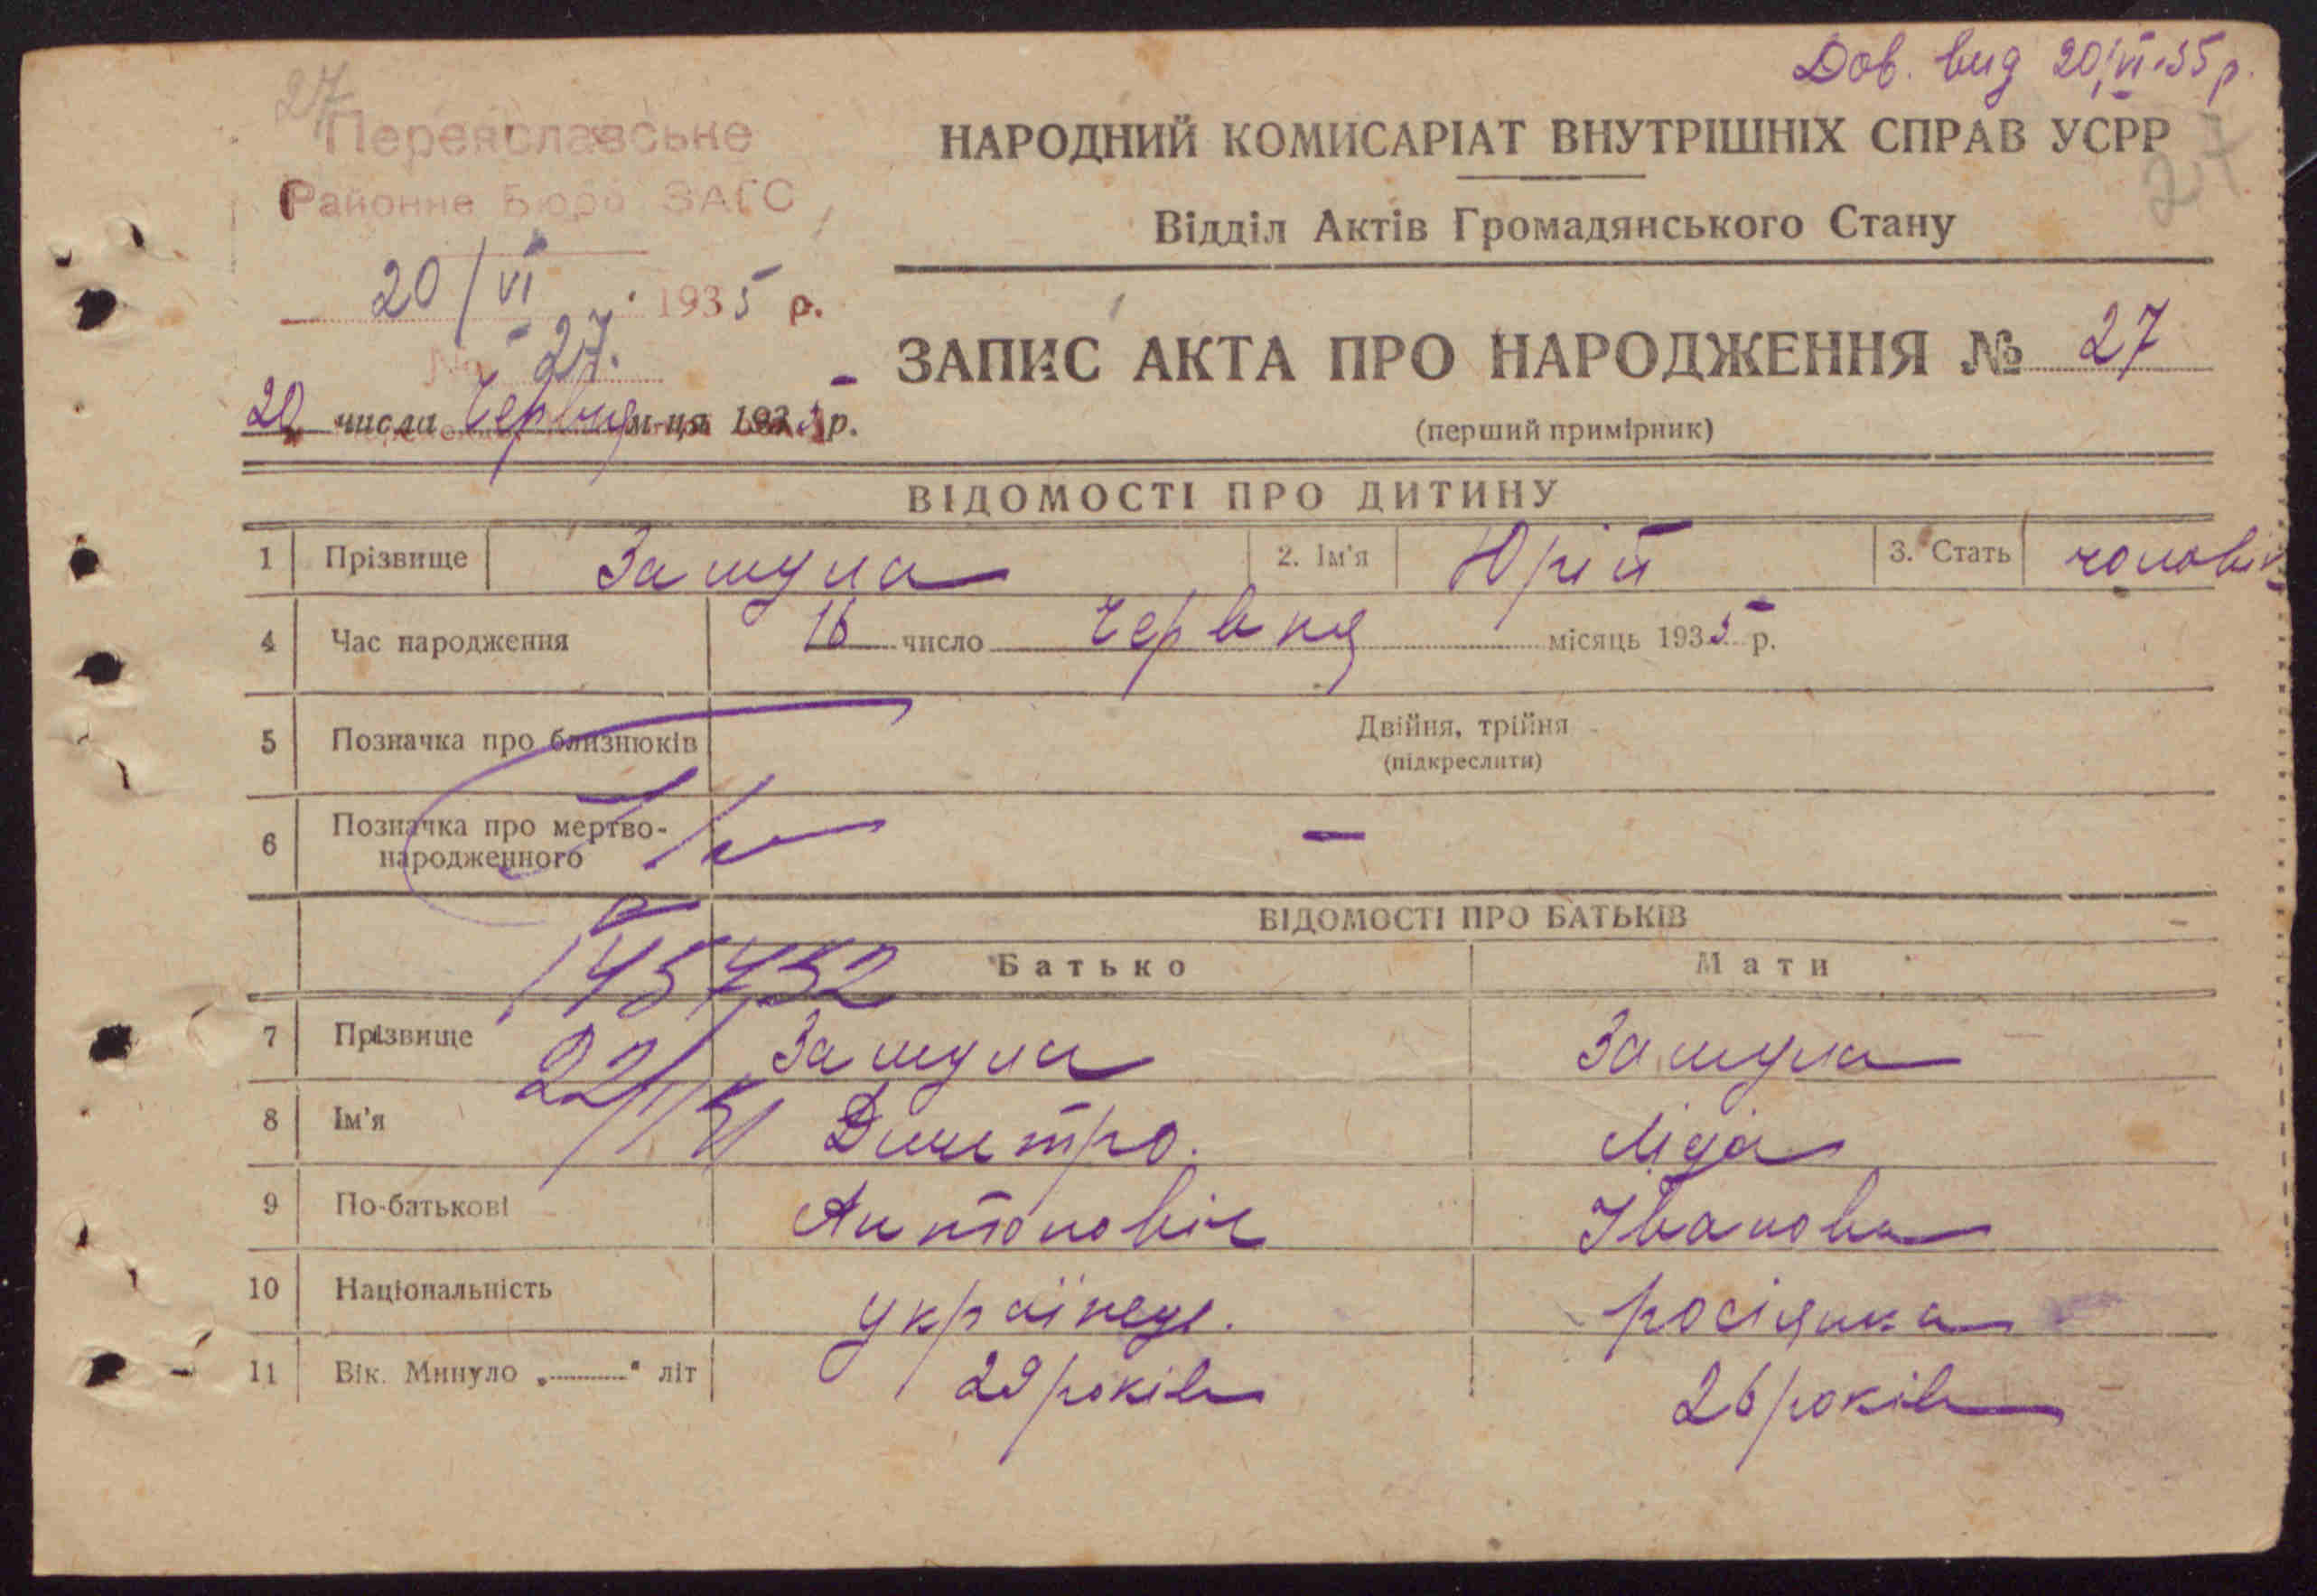 Дов. вид 20/VI-35 р.
27
Переяславське
Районне Бюро ЗАГС
20/VI 1935 р.
№ 27.
20 числа Червня м-ця 1935 р.
НАРОДНИЙ КОМИСАРІАТ ВНУТРІШНІХ СПРАВ УСРР
27
Відділ Актів Громадянського Стану
ЗАПИС АКТА ПРО НАРОДЖЕННЯ № 27
(перший примірник)
ВІДОМОСТІ ПРО ДИТИНУ
1 Прізвище Зашула 2. Ім'я Юрій 3. Стать чоловіч
4 Час народження 16 число Червня місяць 1935 р.
5 Позначка про близнюків Двійня, трійня
(підкреслити)
6 Позначка про мертво-
народженного —
ВІДОМОСТІ ПРО БАТЬКІВ
145732
Батько Мати
22/
7 Прізвище Зашула Зашула
8 Ім'я Дмитро. Ліда
9 По-батькові Антоновіч Іванова
10 Національність українец. росіянка
11 Вік. Минуло „ “ літ 29 років 26 років